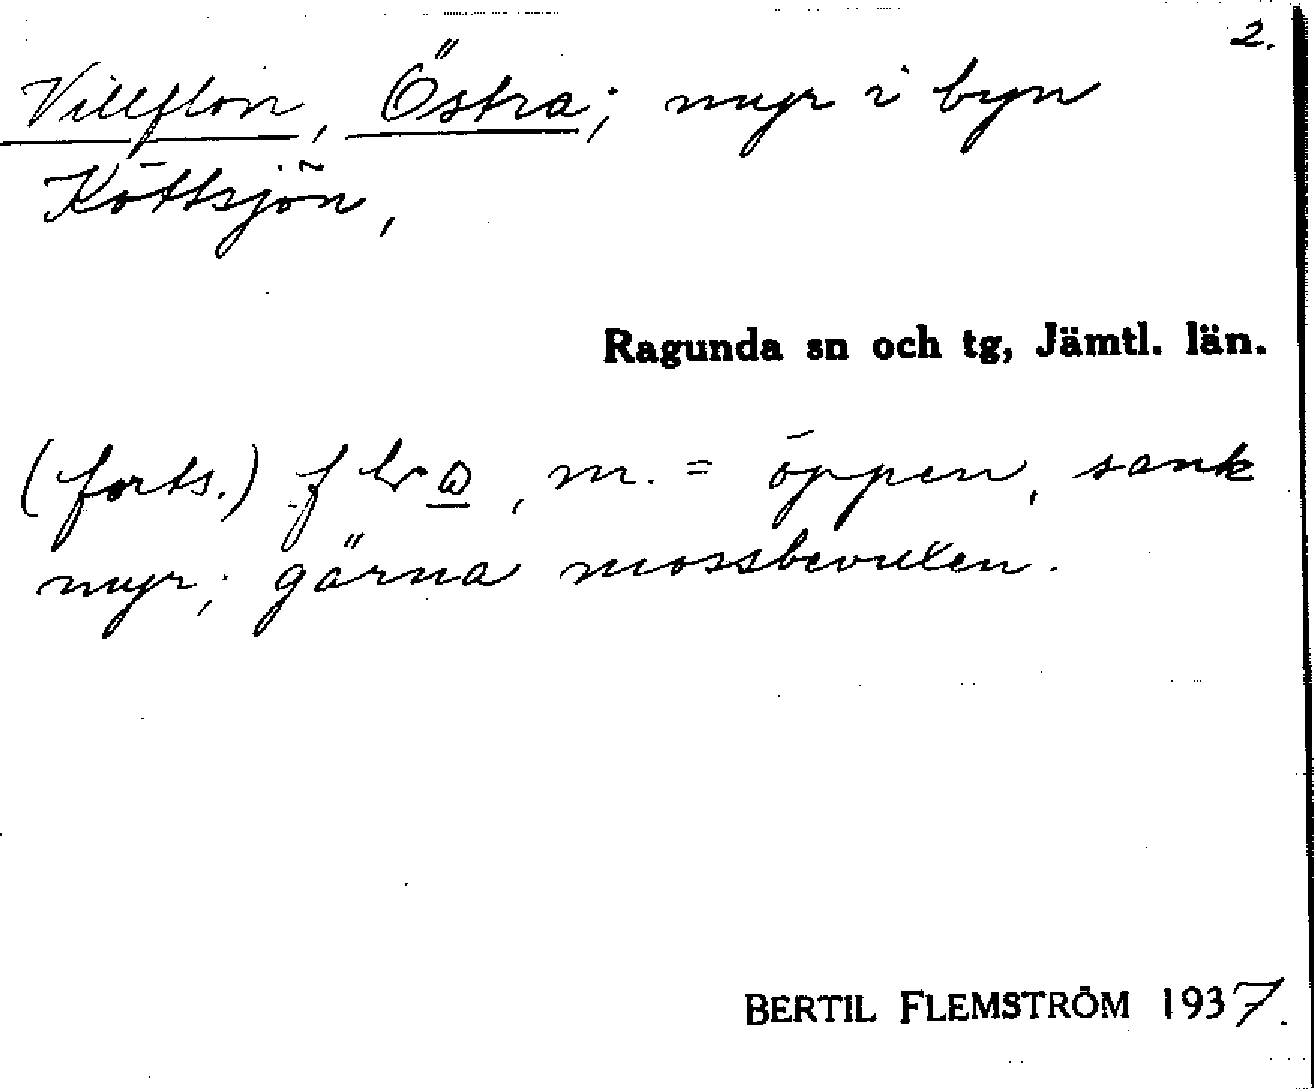 2.
Villflon, Östra; myr i byn
Köttsjön,
Ragunda sn och tg, Jämtl. län.
(forts.) , m. = öppen, sank
myr; gärna mossbevuxen.
BERTIL FLEMSTRÖM 1937.